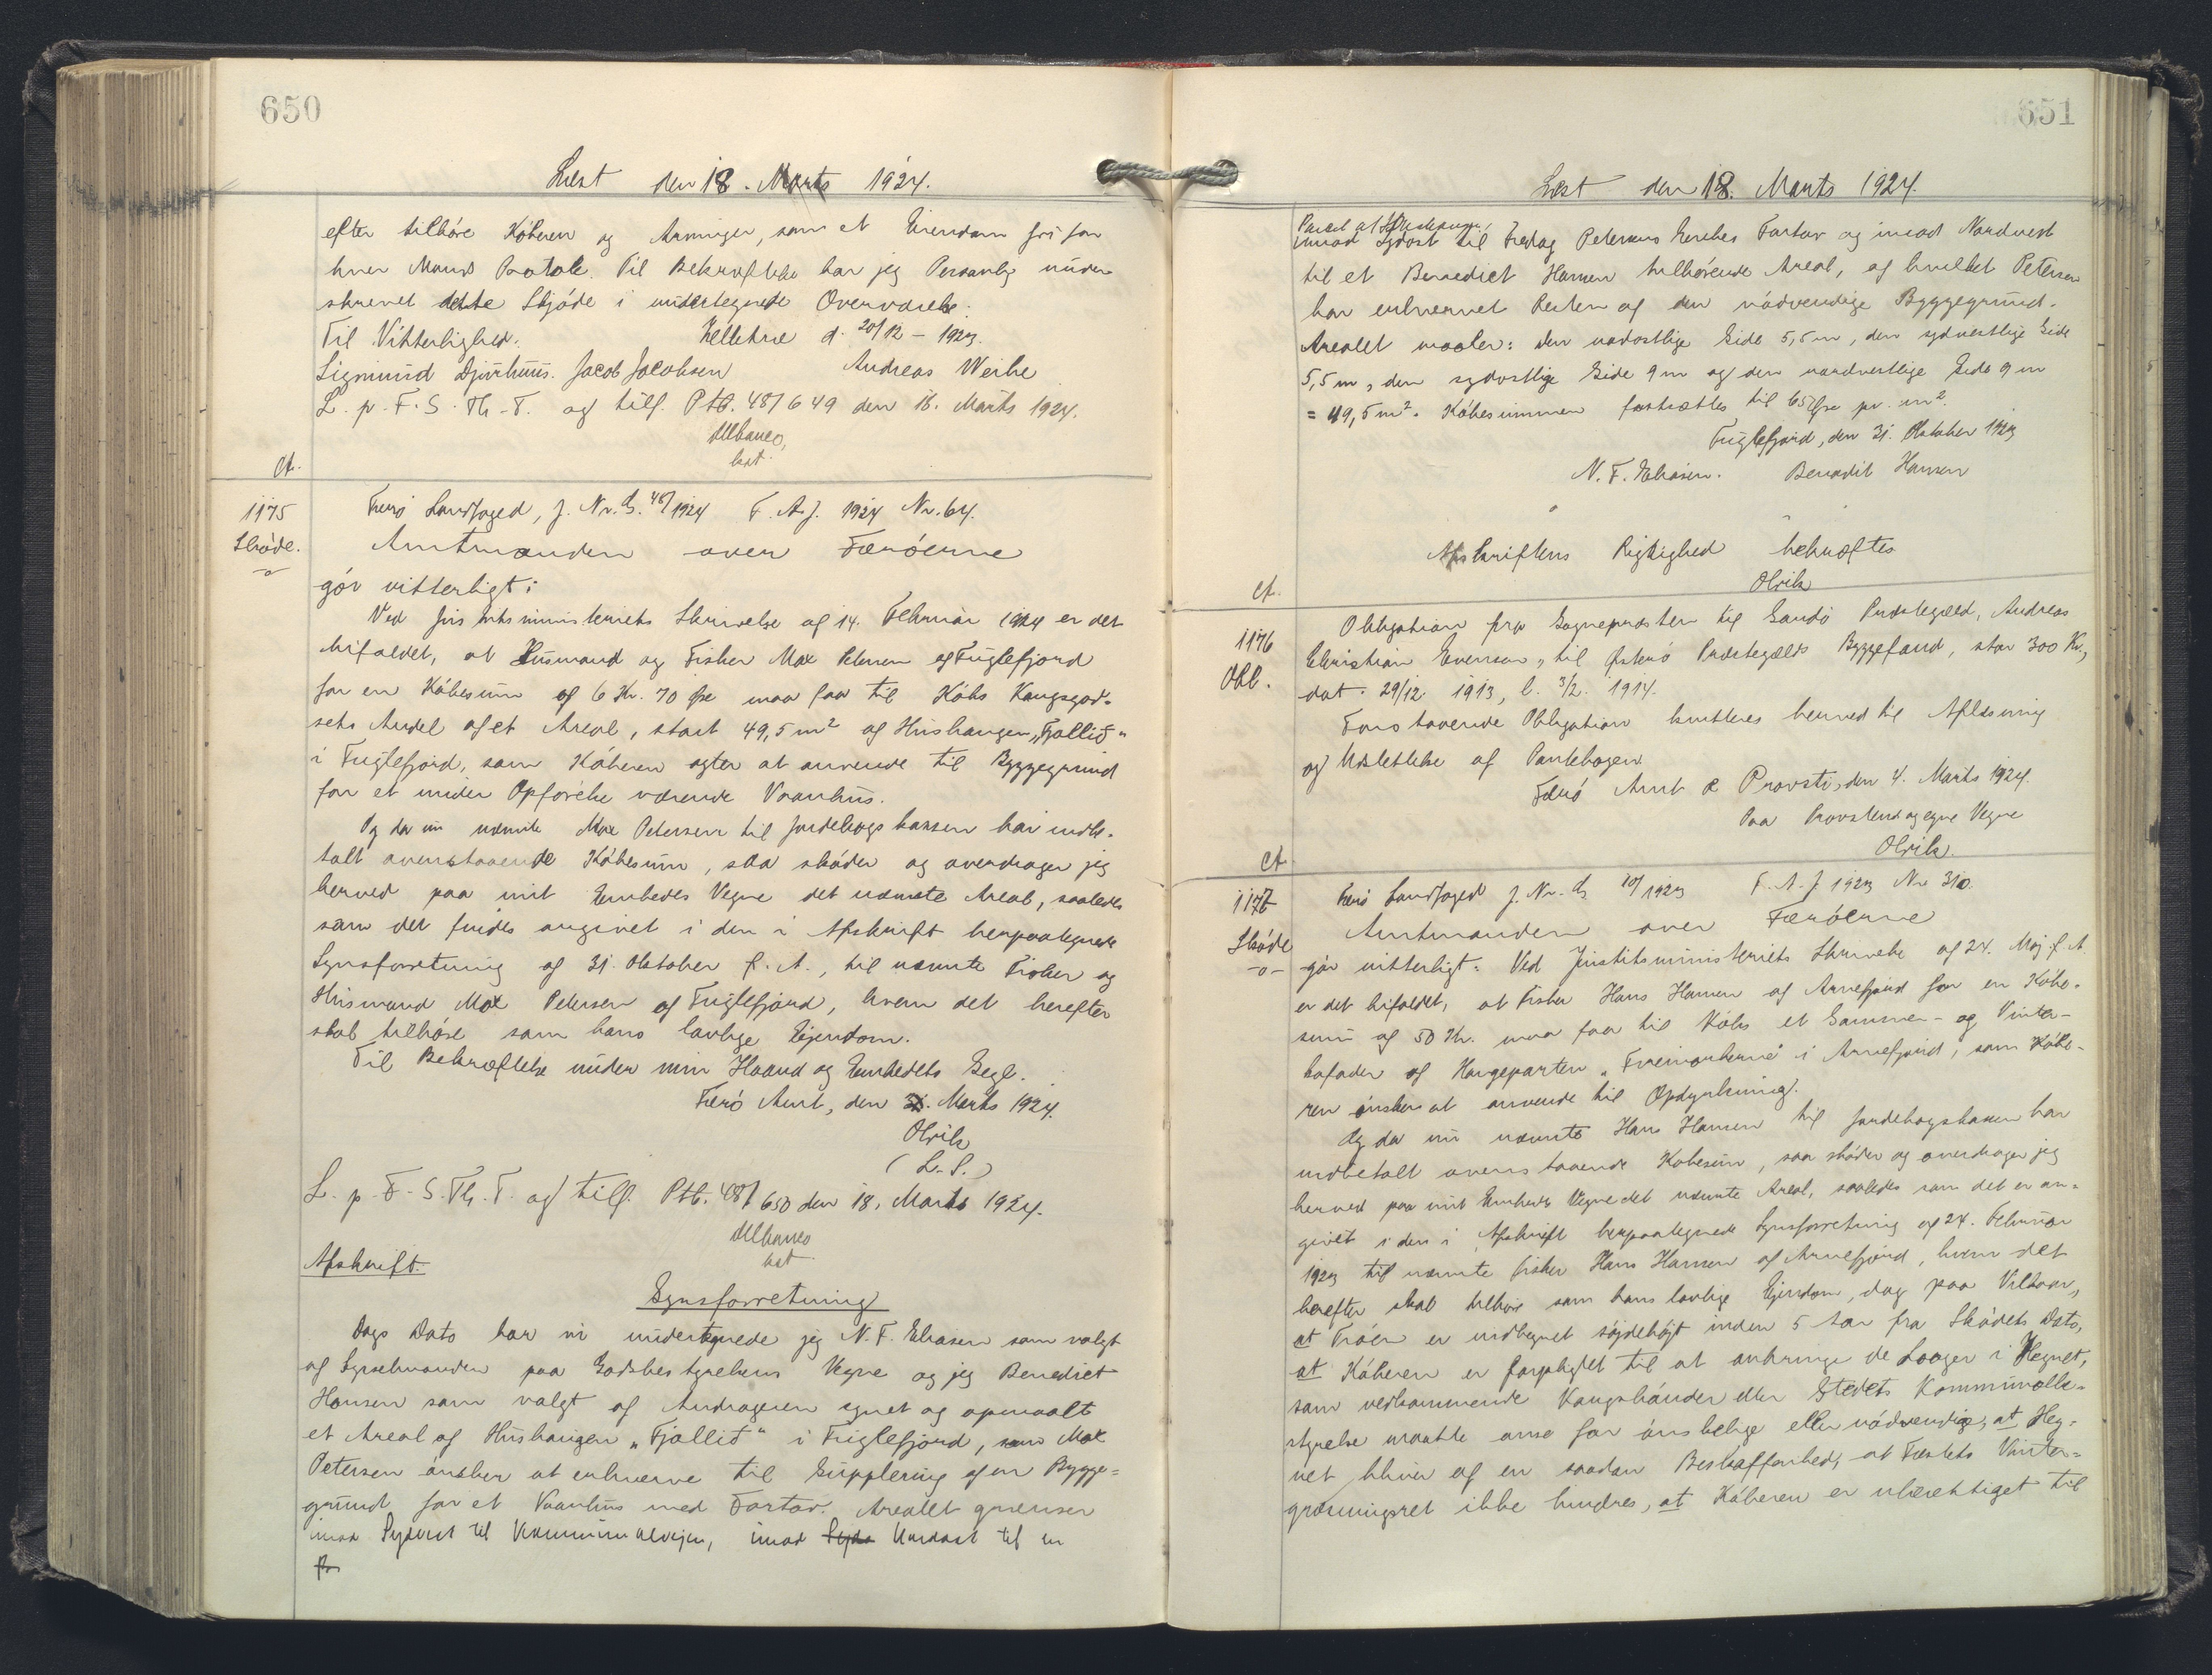 650
Læst den 18. Marts 1924.
efter tilhøre Køberen og Arvinger, som et Eiendom fri for
hver Mands Paatale. Til Bekræftelse har jeg Personlig under
skrevet dette Skjøde i undertegnede Overværelse.
Til Vitterlighed. d. 20/12 – 1923.
Sigmund Djurhuus. Jacob Jacobsen Andreas Weihe
L. p. F. S. Th. T. og tilf. Ptb. 48/649 den 18. Marts 1924.
kst.
A.
1175
Skøde.
Færø Landfoged, J. Nr. G. 48/1924 F. A. J. 1924 Nr. 64.
Amtmanden over Færøerne
gør vitterligt:
Ved Justitsministeriets Skrivelse af 14. Februar 1924 er det
bifaldet, at Husmand og Fisker Max Petersen af Fuglefjord
for en Købesum af 6 Kr. 70 Øre maa faa til Købs Kongsgod-
sets Andel af et Areal, stort 49,5 m² af Hushaugen „Fjallið"
i Fuglefjord, som Køberen agter at anvende til Byggegrund
for et under Opførelse værende Vaanhus.
Og da nu nævnte Max Petersen til Jordebogskassen har indbe-
talt ovenstaaende Købesum, saa skøder og overdrager jeg
herved paa mit Embedes Vegne det nævnte Areal, saaledes
som det findes angivet i den i Afskrift herpaategnede
Synsforretning af 31. Oktober f. A., til nævnte Fisker og
Husmand Max Petersen af Fuglefjord, hvem det herefter
skal tilhøre som hans lovlige Ejendom.
Til Bekræftelse under min Haand og Embedets Segl.
Færø Amt, den 3. Marts 1924.
Olrik
(L. S.)
L. p. F. S. Th. T. og tilf. Ptb. 48/650 den 18. Marts 1924.
kst.
Afskrift.
Synsforretning
Dags Dato har vi undertegnede jeg N. F. Eliasen som valgt
af Sysselmanden paa Godsbestyrelsens Vegne og jeg Benedict
Hansen som valgt af Andrageren synet og opmaalt
et Areal af Hushaugen „Fjallið" i Fuglefjord, som Max
Petersen ønsker at erhverve til Supplering af en Bygge=
grund for et Vaanhus med Fortov. Arealet grænser
imod Sydvest til Kommunalvejen, imod Syd Nordost til en
651
Læst den 18. Marts 1924.
Parcel af
imod Sydost til Fredag Petersens Enches Fortov og imod Nordvest
til et Benedict Hansen tilhørende Areal, af hvilket Petersen
har erhvervet Resten af den nødvendige Byggegrund.
Arealet maaler: den nordostlige Side 5,5 m, den sydvestlige Side
5,5 m, den sydostlige Side 9 m og den nordvestlige Side 9 m
= 49,5 m². Købesummen fastsættes til 65 Øre pr. m².
Fuglefjord, den 31. Oktober 1923
N. F. Eliasen. Benedit Hansen
Afskriftens Rigtighed bekræftes
Olrik
A.
1176
Obl.
Obligation fra Sognepræsten til Sandø Præstegæld, Andreas
Christian Evensen, til Østerø Præstegælds Byggefond, stor 300 Kr.,
dat. 29/12 1913, l. 3/2 1914.
Foranstaaende Obligation kvitteres herved til Aflæsning
og Udslettelse af Pantebogen.
Færø Amt & Provsti, den 4. Marts 1924.
Paa Provstens og egne Vegne
Olrik.
A
1177
Skøde
Færø Landfoged J. Nr. G 10/1923 F. A. J. 1923 Nr 310.
Amtmanden over Færøerne
gør vitterligt: Ved Justitsministeriets Skrivelse af 24. Maj f. A
er det bifaldet, at Fisker Hans Hansen af Arnefjord for en Købe-
sum af 50 Kr. maa faa til Købs et Sommer- og Vinter-
kofoder af Haugeparten i Arnefjord, som Købe-
ren ønsker at anvende til Opdyrkning.
Og da nu nævnte Hans Hansen til Jordebogskassen har
indbetalt ovenstaaende Købesum, saa skøder og overdrager jeg
herved paa mit Embeds Vegne det nævnte Areal, saaledes som det er an-
givet i den i Afskrift herpaategnede Synsforretning af 24. Februar
1923 til nævnte Fisker Hans Hansen af Arnefjord, hvem det
herefter skal tilhøre som hans lovlige Ejendom, dog paa Vilkaar,
at Trøen er indhegnet søjdehøjt inden 5 Aar fra Skødets Dato,
at Køberen er forpligtet til at anbringe de Laager i Hegnet,
som vedkommende Kongsbønder eller Stedets Kommunalbe-
styrelse maatte anse for ønskelige eller nødvendige, at Heg-
net bliver af en saadan Beskaffenhed, at Fæstets Vinter-
græsningsret ikke hindres, at Køberen er uberettiget til